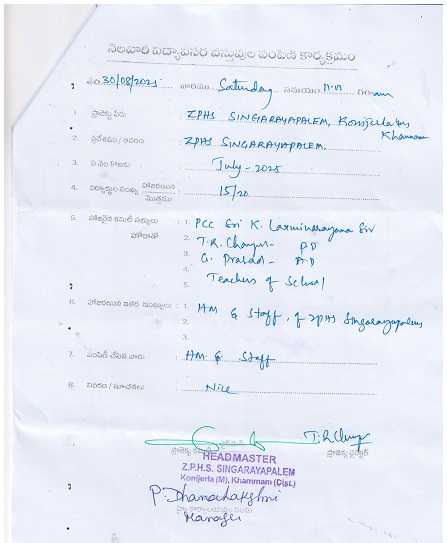 నెలవారీ విద్యావసర వస్తువుల పంపిణి కార్యక్రమం
తేది 30/08/2025 వారము Saturday సమయం 11-00 గం am
1. ప్రాజెక్టు పేరు : ZPHS SINGARAYAPALEM, Konijerla ms Khammam
2. ప్రదేశము / ఆవరణ : ZPHS SINGARAYAPALEM.
3. ఏ నెల కొఱకు : July - 2025
4. విద్యార్థుల సంఖ్య హాజరయిన / మొత్తము : 15/20
5. హాజరైన కమిటి సభ్యులు హోదాతో : 1. PCC Sri K. Laxminarayana Sir
2. T.R. - P.D
3. G. Prasad - A.D
4. Teachers of School
5.
6. హాజరయిన ఇతర ముఖ్యులు : 1. HM & Staff, of ZPHS Singarayapalem
2.
3.
7. పంపిణి చేసిన వారు : HM & Staff
8. వివరణ / సూచనలు : Nice
ప్రాజెక్టు చైర్మెన్
ప్రాజెక్టు డైరెక్టర్
HEADMASTER
Z.P.H.S. SINGARAYAPALEM
Konijerla (M), Khammam (Dist.)
P. Dhanalakshmi
Manager